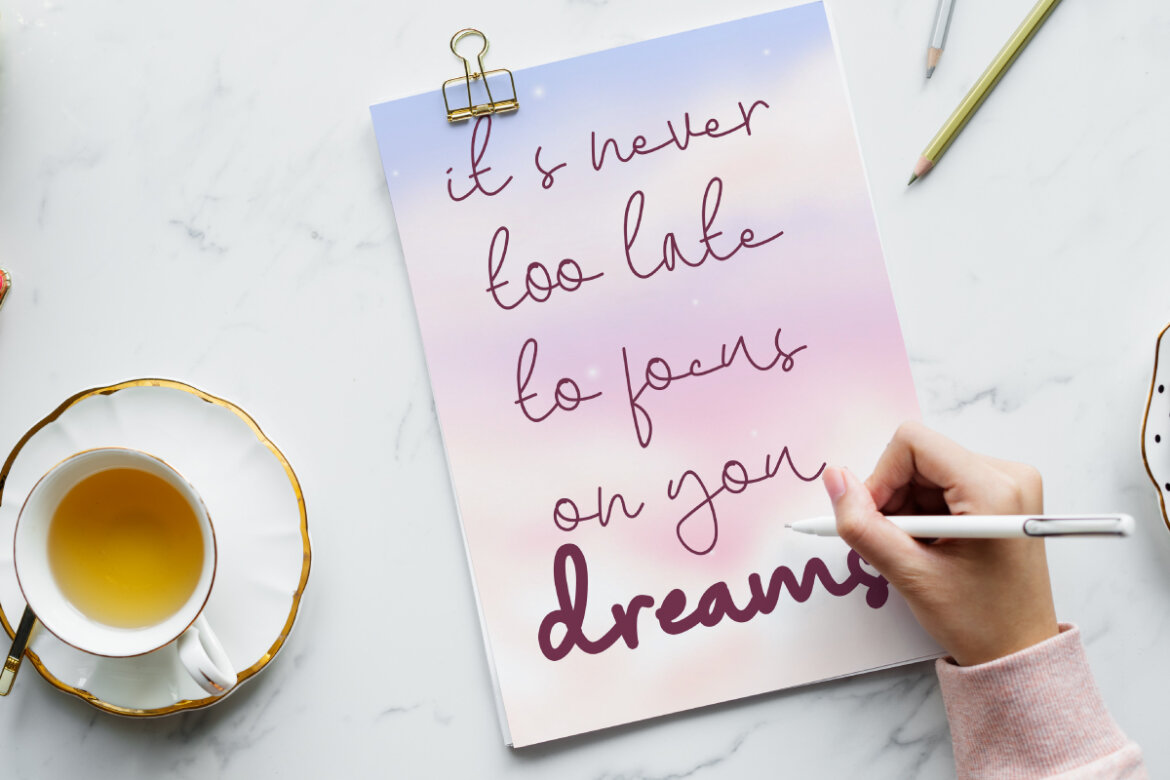 it's never
too late
to focus
on your
dreams